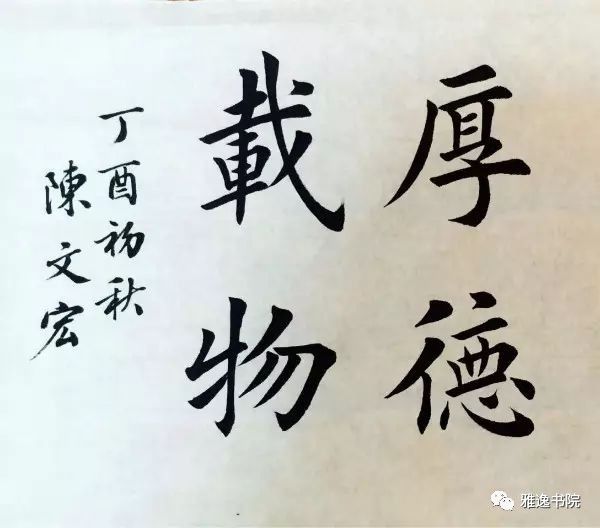 厚德
載物
丁酉初秋
陳文宏
雅逸书院